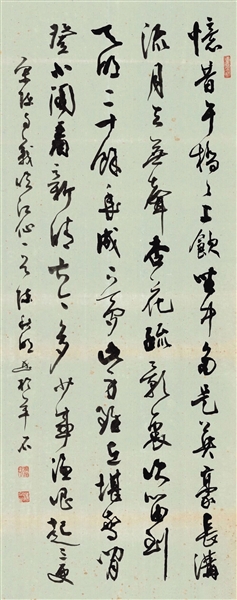 憶昔午橋々上飲坐中多是英豪長溝
流月去無聲杏花疏影裏吹笛到
天明二十餘年成一夢此身雖在堪驚閒
登小閣看新晴古今多少事漁唱起三更
宋陳與義臨江仙一首 陳秋明書於羊石